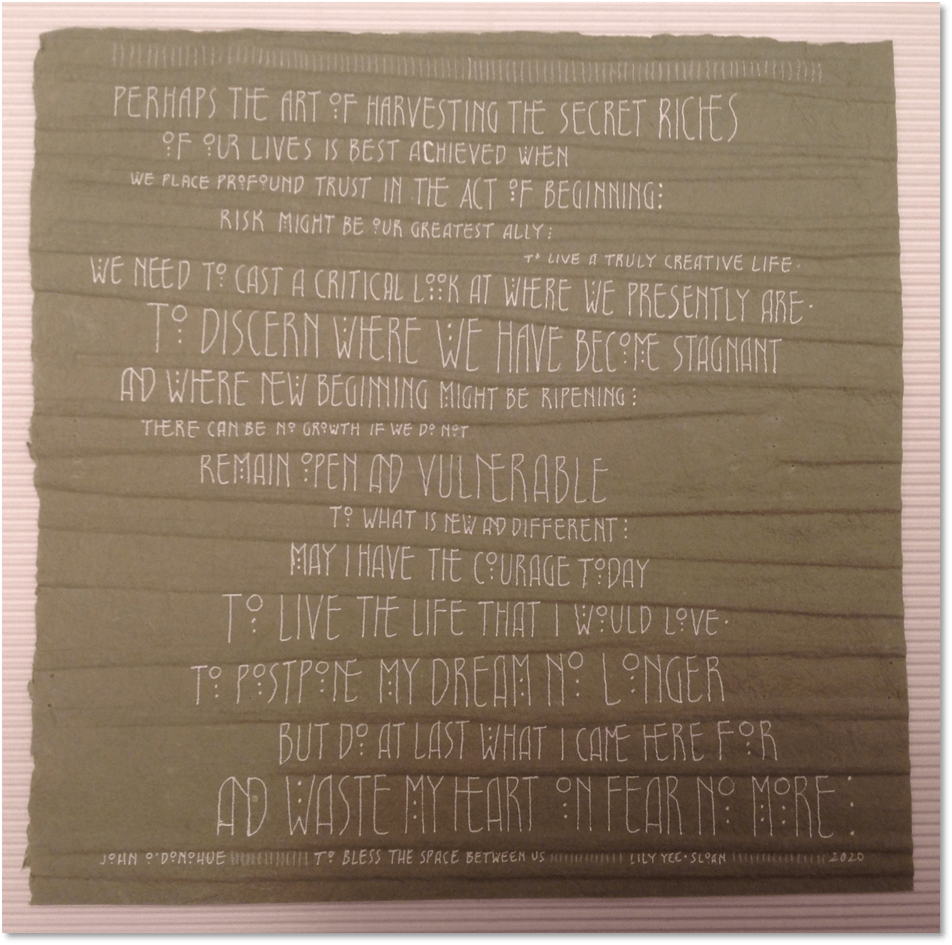 PERHAPS THE ART OF HARVESTING THE SECRET RICHES
OF OUR LIVES IS BEST ACHIEVED WHEN
WE PLACE PROFOUND TRUST IN THE ACT OF BEGINNING:
RISK MIGHT BE OUR GREATEST ALLY:
TO LIVE A TRULY CREATIVE LIFE·
WE NEED TO CAST A CRITICAL LOOK AT WHERE WE PRESENTLY ARE·
TO DISCERN WHERE WE HAVE BECOME STAGNANT
AND WHERE NEW BEGINNING MIGHT BE RIPENING:
THERE CAN BE NO GROWTH IF WE DO NOT
REMAIN OPEN AND VULNERABLE
TO WHAT IS NEW AND DIFFERENT:
MAY I HAVE THE COURAGE TODAY
TO LIVE THE LIFE THAT I WOULD LOVE·
TO POSTPONE MY DREAM NO LONGER
BUT DO AT LAST WHAT I CAME HERE FOR
AND WASTE MY HEART ON FEAR NO MORE:
JOHN O'DONOHUE TO BLESS THE SPACE BETWEEN US LILY YEE·SLOAN 2020